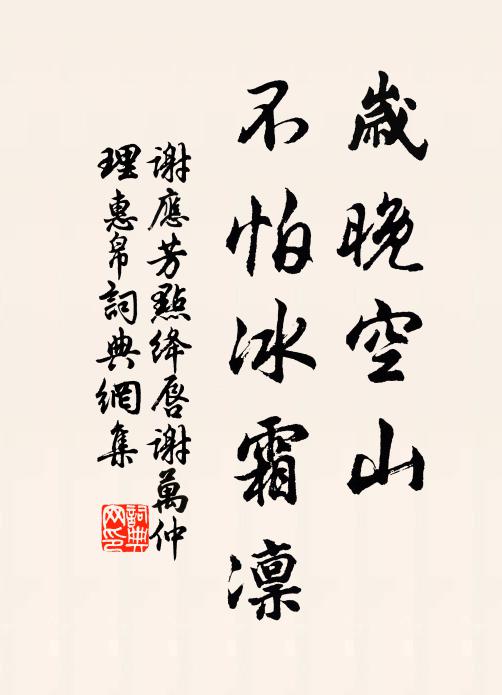 歲晚空山
不怕冰霜凛
謝應芳點絳唇謝萬仲
理惠帛詞典網集
詞典
网印